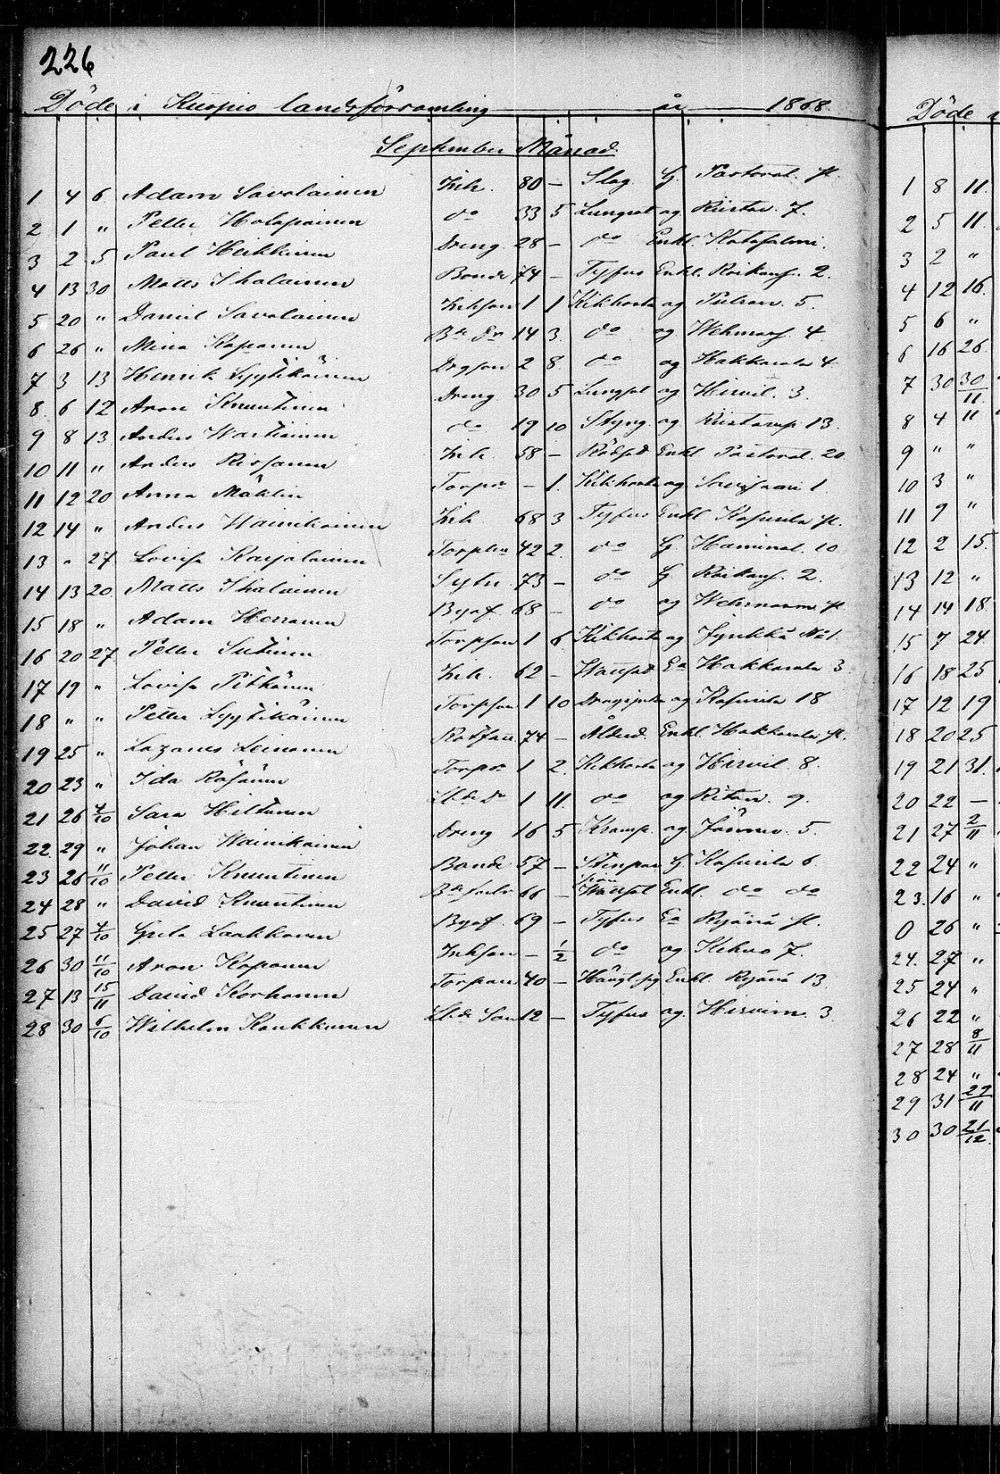 226
Döde i Kuopio landsförsamling år 1868.
September Månad
1 4 6 Adam Savolainen Inh. 80 — Slag G. Pastoral. fl.
2 1 " Petter Holopainen do 33 5 Lungsot og Riistav. 7.
3 2 5 Paul Heikkinen Dreng 28 — do Enkl.
4 13 30 Matts Ihalainen Bonde 74 — Tyfus Enkl. Roikans. 2.
5 20 " Daniel Savolainen Inhson 1 1 Kikhosta og 5.
6 26 " Mina Koponen Bde Dr 14 3. do og Wehmas. 4
7 3 13 Henrik Lyytikäinen Drgson 2 8. do og Hakkarala 4
8. 6 12 Aron Knuutinen Dreng 30 5 Lungsot og Hirvil. 3.
9 8 13 Anders Wartiainen do 19 10 Styng. og 13
10 11 " Anders Rissanen Inh. 58 — Rödsot Enkl. Pastoral. 20
11 12 20 Anna Mäklin Torpdr — 1. Kikhosta og Sorsasaari 1
12 14 " Anders Wainikainen Inh. 68 3 Tyfus Enkl Kasurila fl.
13 " 27 Lovisa Karjalainen 42 2. do G. Haminal. 10
14 13 20 Matts Ihalainen Sytn. 73 — do G Roikans. 2.
15 18 " Adam Bgaf 68 — do og Wehmasm fl.
16 20 27 Petter Sutinen Torpson 1 6 Kikhosta og Jynkkä No 1.
17 19 " Lovisa Pitkänen Inh. 62 — Wattusot Ea Hakkarala 3
18 " " Petter Lyytikäinen Torpson 1 10 og Kasurila 18
19 25 " Lazarus Leinonen 74 — Ålderd. Enkl Hakkarala fl.
20 23 " Ida Räsänen Torpdr 1 2. Kikhosta og Hirvil. 8.
21 26 7/10 Sara Hiltunen Lbde Dr 1 11. do og Riton. 9.
22. 29 " Johan Wainikainen Dreng 16 5 Kramp. og Jännev. 5.
23 26 11/10 Petter Knuutinen Bonde 57 — G. Kasurila 6
24 28 " David Knuutinen 66 — Enkl. do do
25 27 7/10 Greta Laakkonen Bgaf. 69 — Tyfus Ea Ryönä fl.
26 30 11/10 Aron Koponen Inhson — 1/2 do og Kehvo 7.
27 13 15/11 David Korhonen Torpare 40 — Hängt sig Enkl. Ryönä 13.
28 30 6/10 Wilhelm Kaukkunen Lbde Son 12 — Tyfus og Hirvim. 3.
Döde i
1 8 11.
2 5 11.
3 2 "
4 12 16.
5 6 "
6 16 26.
7 30 30/11.
8 4 11
9 " "
10 3 "
11 9 "
12 2 15.
13 12 "
14 14 18.
15 7 24.
16 18 25
17 12 19
18 20 25
19 21 31.
20 22 —
21 27 2/11
22 24 "
23. 16 "
0 26 "
24. 27 "
25 24 "
26 22 "
27 28 8/11
28 24 "
29 31 22/11
30 30 21/12